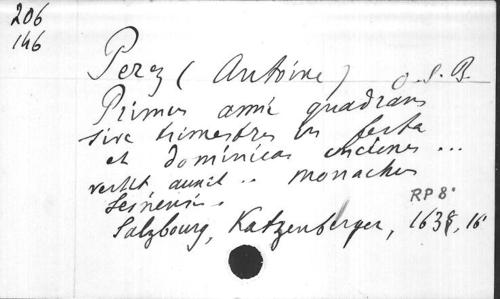 206
146
Perez (Antoine) O.S.B.
Primus anni quadrans
sive trimestres in festa
et dominicas ...
vertit ... monachus
RP 8°
Salzbourg, Katzenberger, 1638, 16°